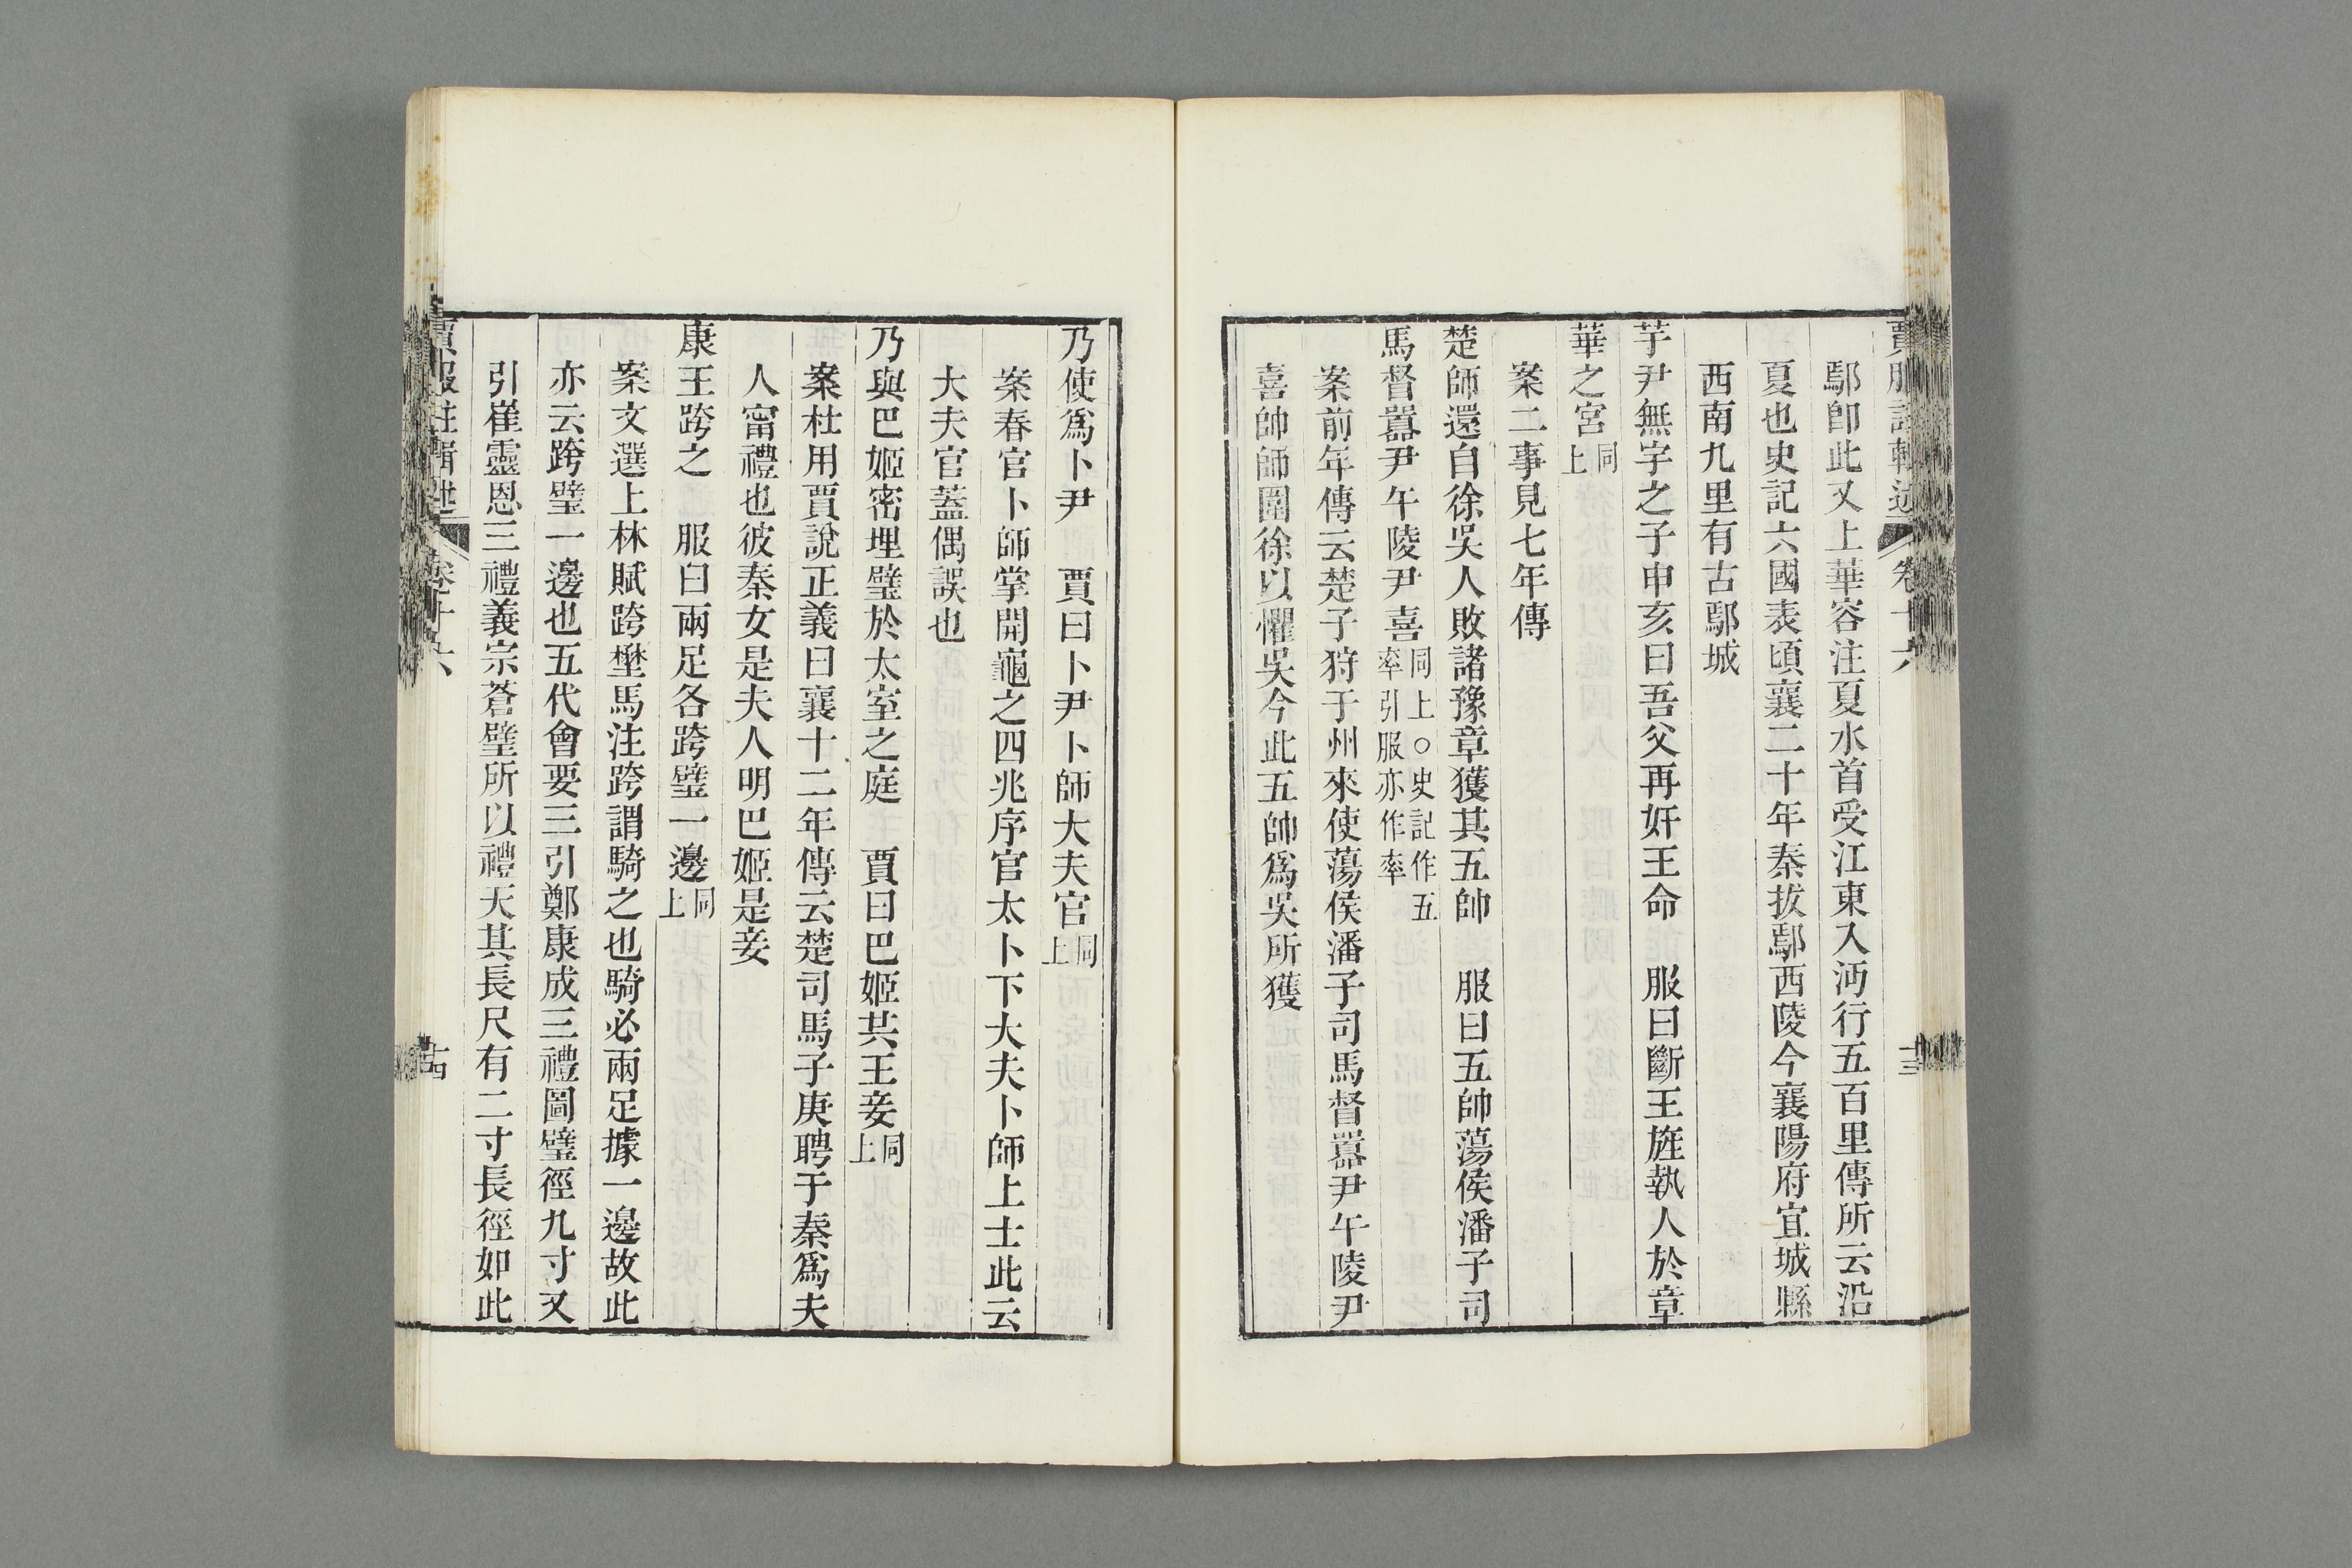 賈服註輯述 卷十六 十三
鄢卽此又上華容注夏水首受江東入沔行五百里傳所云沿
夏也史記六國表頃襄二十年秦拔鄢西陵今襄陽府宜城縣
西南九里有古鄢城
芋尹無宇之子申亥曰吾父再奸王命 服曰斷王旌執人於章
華之宮同上
案二事見七年傳
楚師還自徐吳人敗諸豫章獲其五帥 服曰五帥蕩侯潘子司
馬督囂尹午陵尹喜同上○史記作五率引服亦作率
案前年傳云楚子狩于州來使蕩侯潘子司馬督囂尹午陵尹
喜帥師圍徐以懼吳今此五帥爲吳所獲
乃使爲卜尹 賈曰卜尹卜師大夫官同上
案春官卜師掌開龜之四兆序官太卜下大夫卜師上士此云
大夫官蓋偶誤也
乃與巴姬密埋璧於太室之庭 賈曰巴姬共王妾同上
案杜用賈說正義曰襄十二年傳云楚司馬子庚聘于秦爲夫
人甯禮也彼秦女是夫人明巴姬是妾
康王跨之 服曰兩足各跨璧一邊同上
案文選上林賦跨壄馬注跨謂騎之也騎必兩足據一邊故此
亦云跨璧一邊也五代會要三引鄭康成三禮圖璧徑九寸又
引崔靈恩三禮義宗蒼璧所以禮天其長尺有二寸長徑如此
賈服註輯述 卷十六 十四